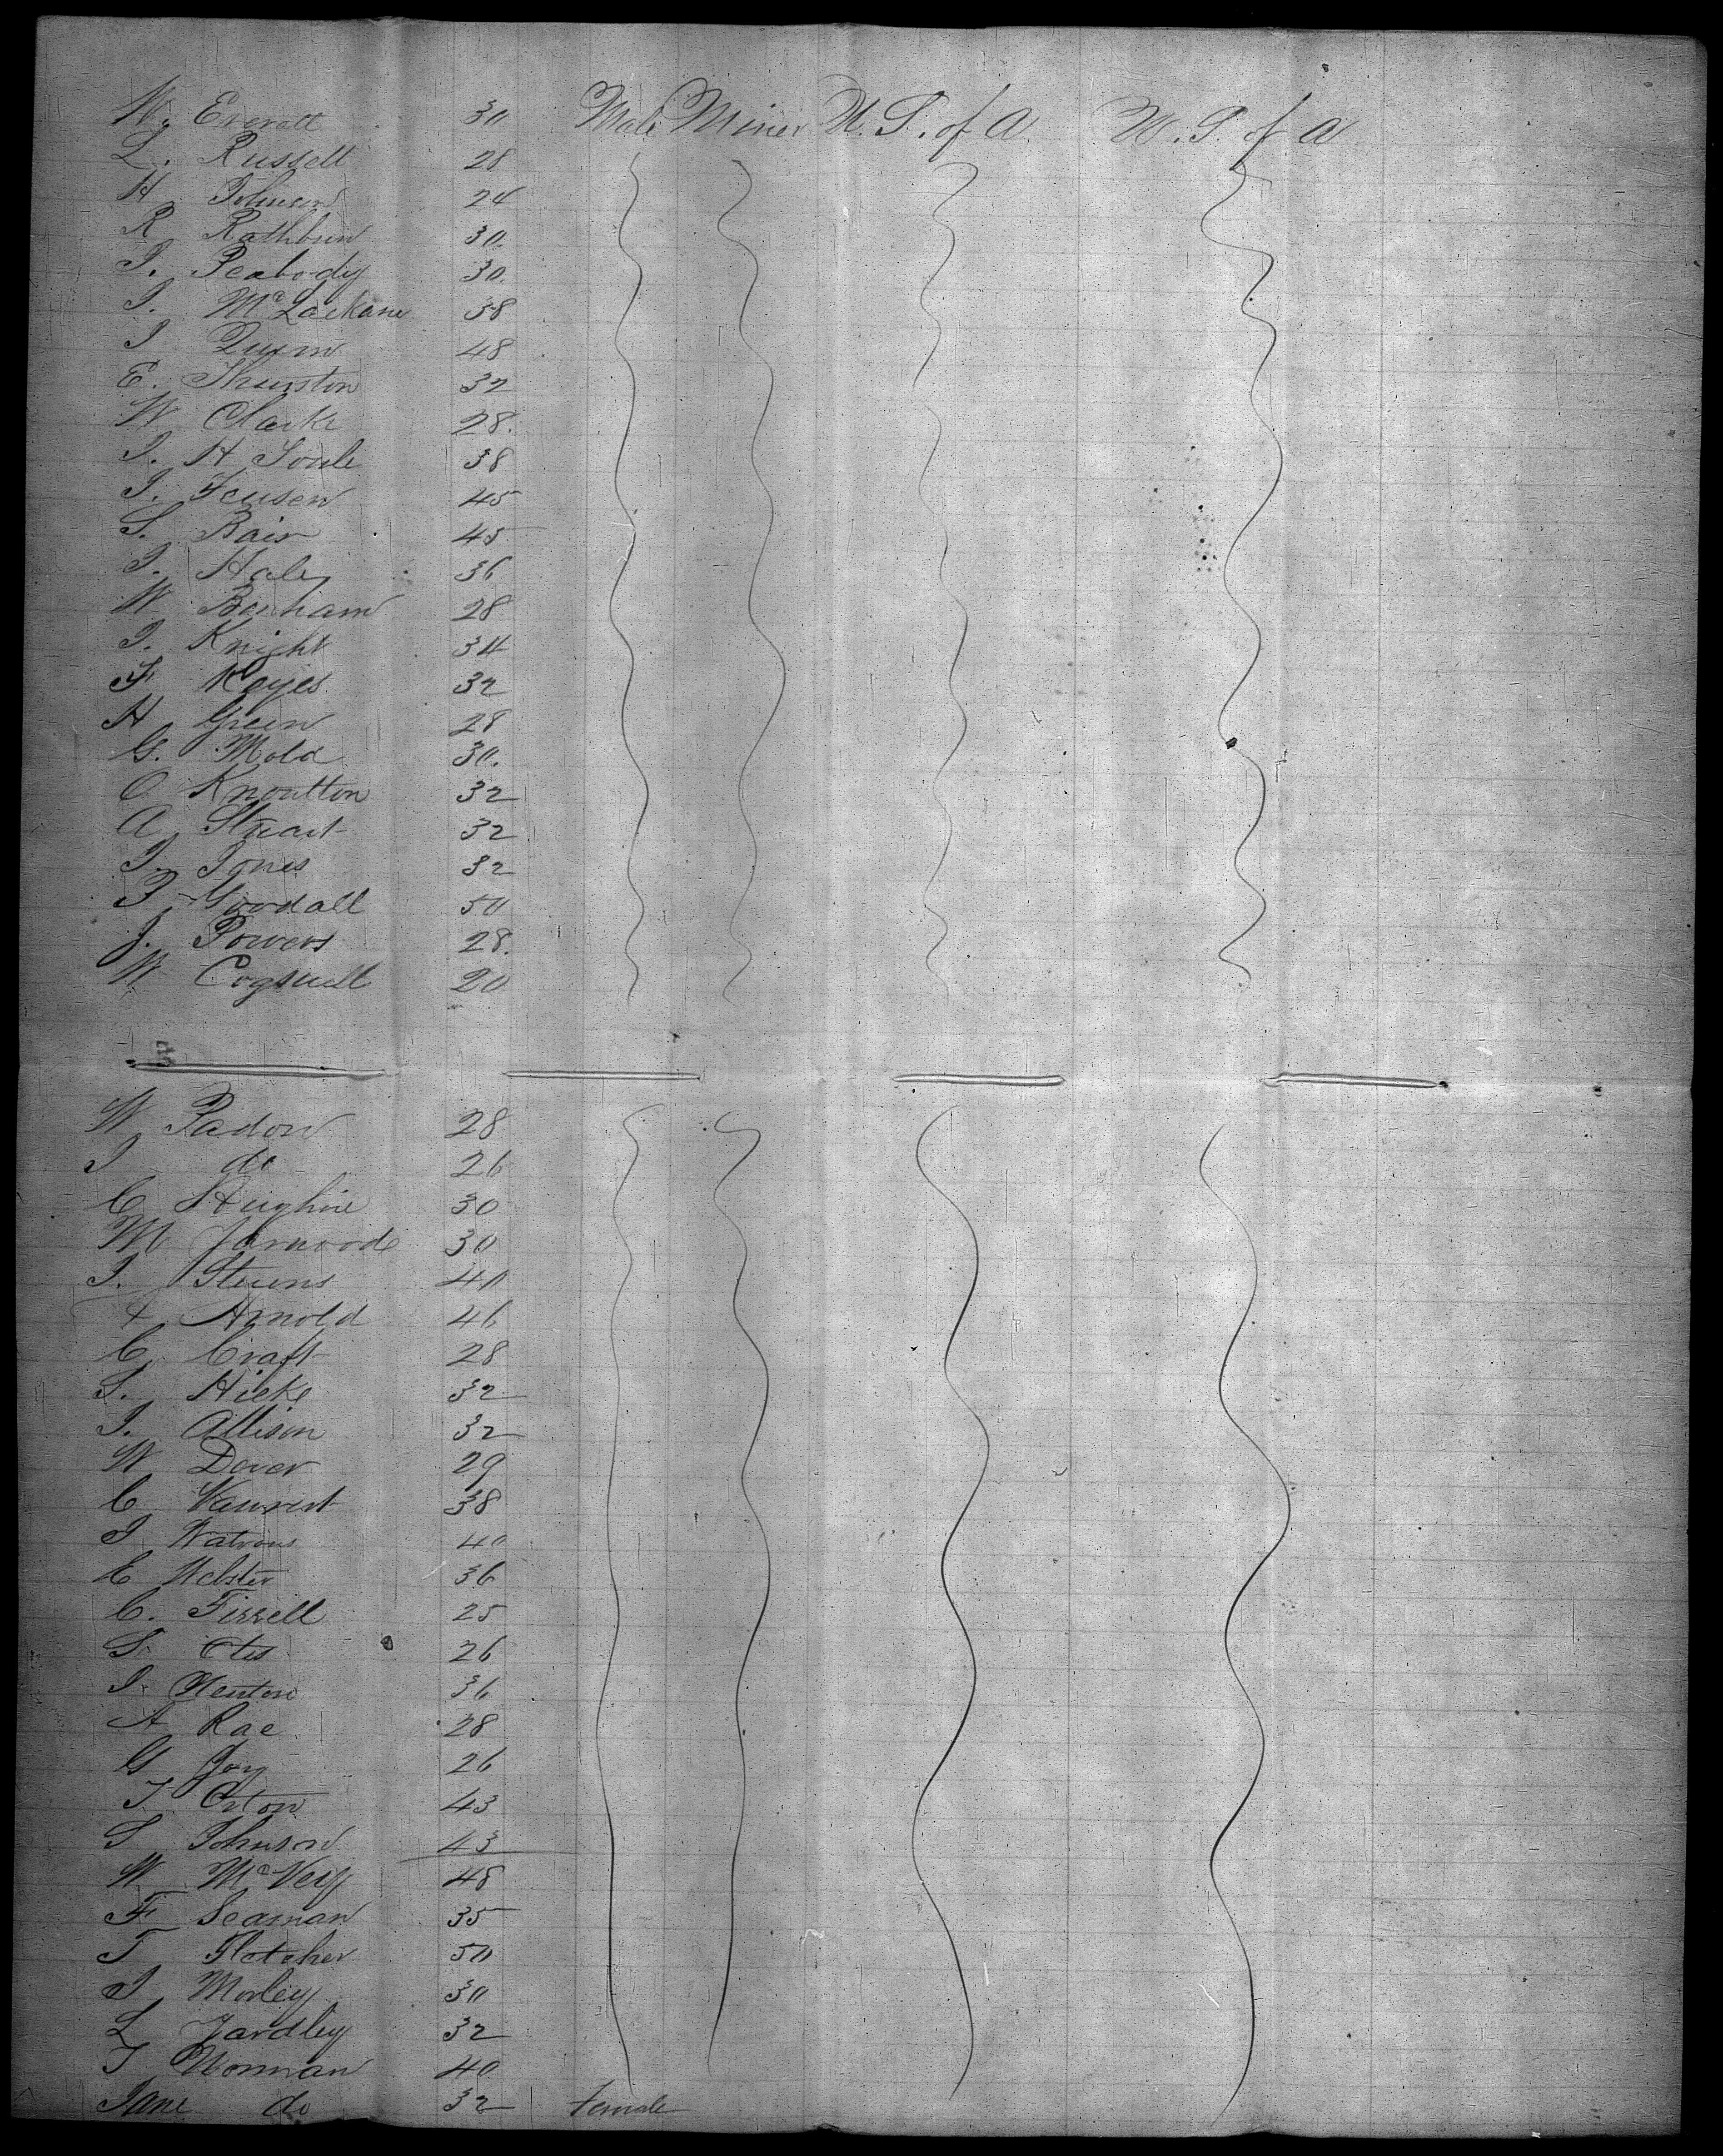 W. Everatt 30 Male Miner U.S. of A U.S. of A
L. Russell 28
H. Johnson 24
R Rathbun 30.
I. Peabody 30.
I. McLackane 38
I Quinn 48
E. Thurston 32
W Clarke 28.
I. H Soule 38
I. 45
S. Bair 45
I. Haley 36
W Benham 28
I. Knight 34
F Keyes 32
H. Green 28
G. Mold 30.
O Knoulton 32
A, Stuart 32
I. Jones 32
P, Goodall 50
J. Powers 28.
W Cogswell 20
W Padon 28
I do 26
C Hughine 30
M 30
I. Stevens 40
Arnold 46
C, Craft 28
S. Hicke 32
I. Allison 32
W Dever 29
C 38
I Watrous 40
E Webster 36
C. Firrell 25
S. Otis 26
I. 36
A Rae 28
G Joy 26
T Orton 43
S Johnson 43
W McVey 48
F Seaman 35
T Fletcher 50
I Morley 30
L Yardley 32
T Worman 40
Jane do 32 Female